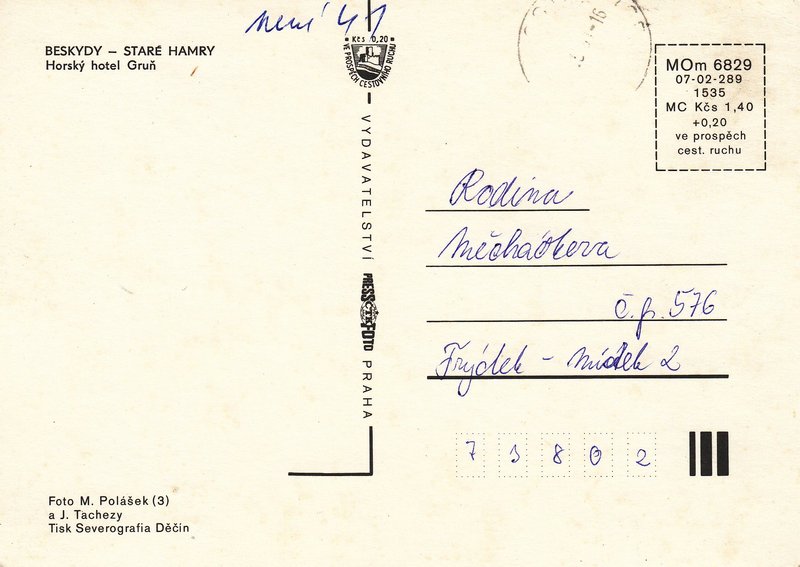 není 41
BESKYDY – STARÉ HAMRY
Horský hotel Gruň
Kčs 0,20
VE PROSPĚCH CESTOVNÍHO RUCHU
16
MOm 6829
07-02-289
1535
MC Kčs 1,40
+0,20
ve prospěch
cest. ruchu
VYDAVATELSTVÍ
PRESSFOTO
ČTK
PRAHA
Rodina
č.p. 576
Frýdek - Místek 2
7 3 8 0 2
Foto M. Polášek (3)
a J. Tachezy
Tisk Severografia Děčín